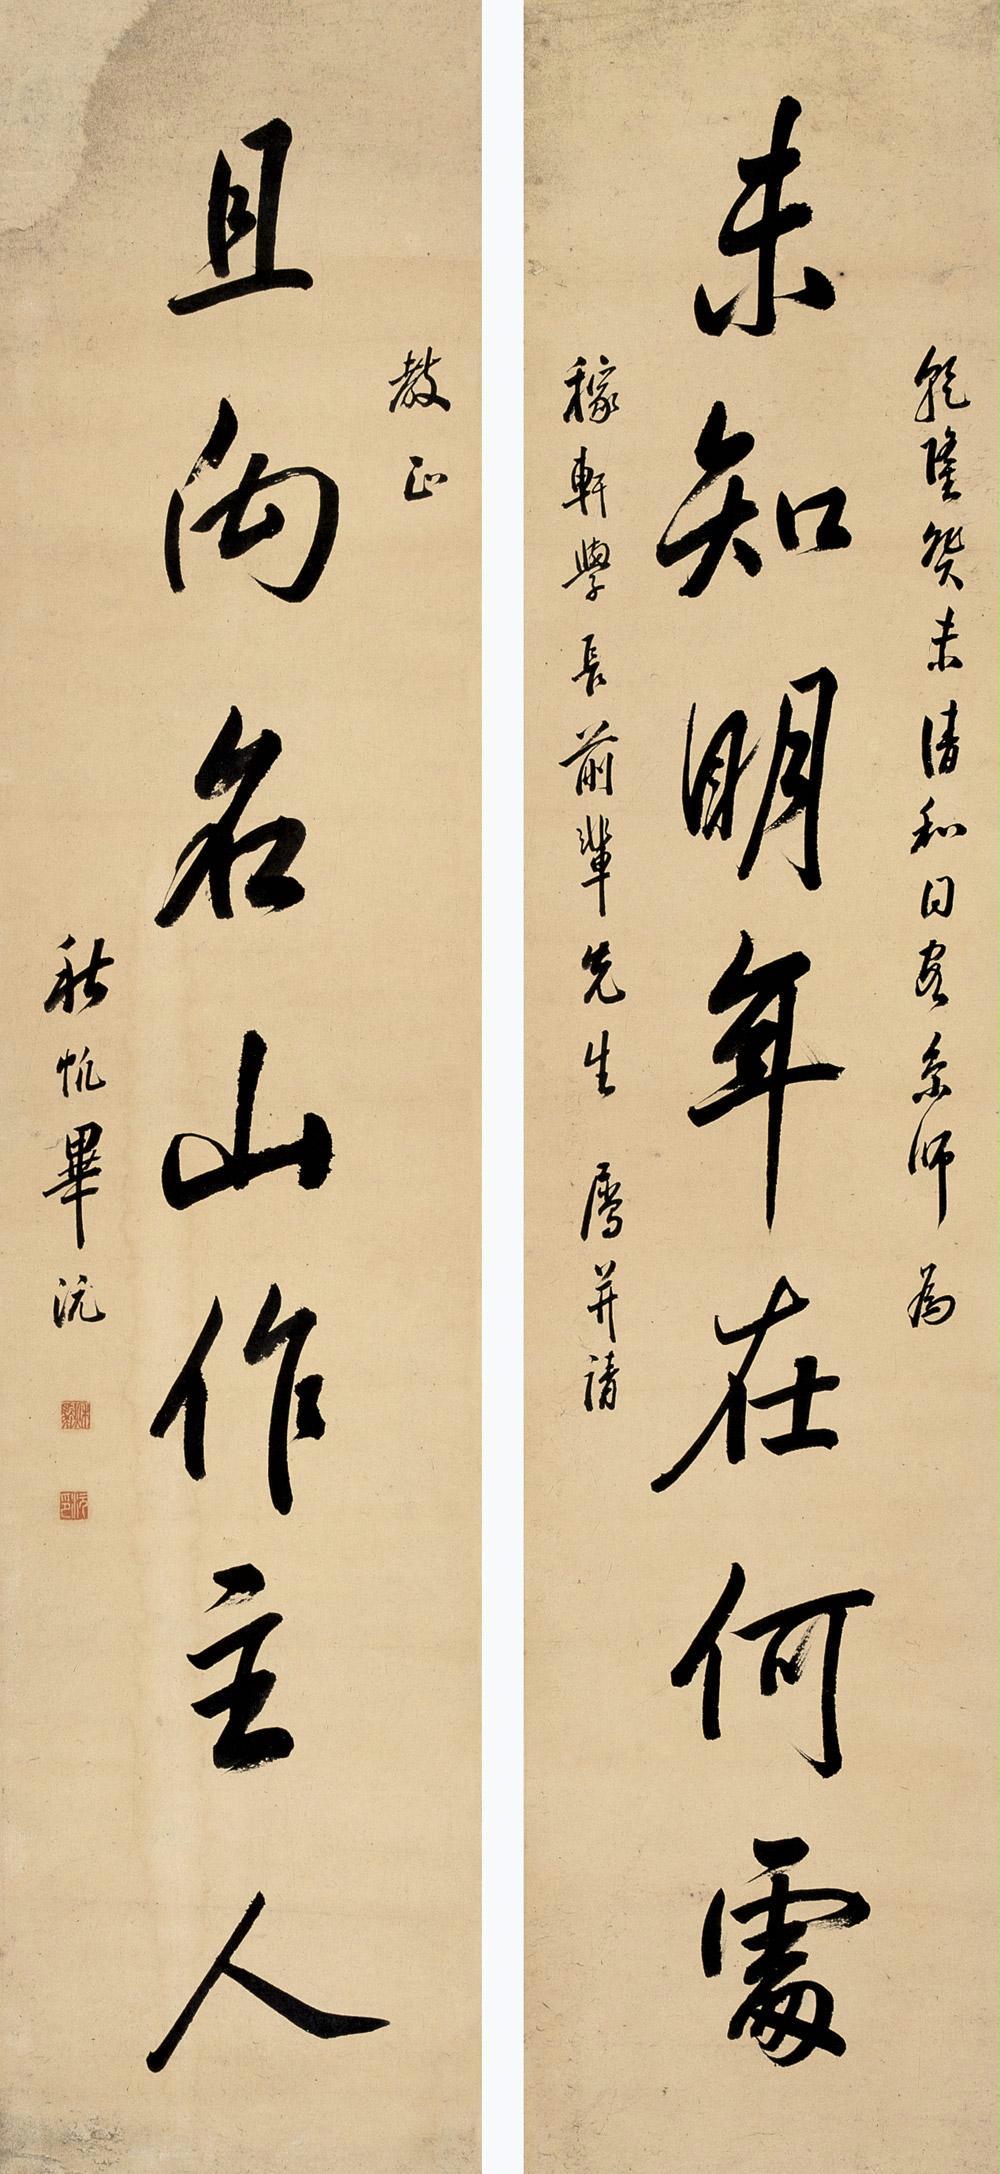 乾隆癸未清和日書京師為
未知明年在何處
稼軒學長前輩先生屬并請
教正
且向名山作主人
秋帆畢沅